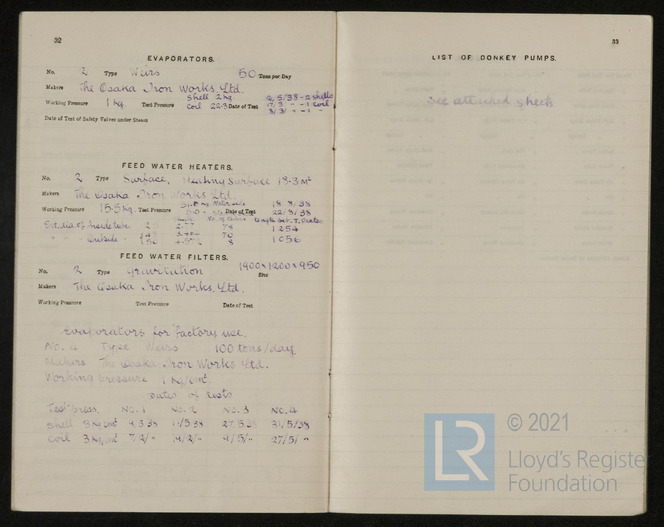 32
EVAPORATORS.
No. 2 Type Weirs 50 Tons per Day
Makers The Osaka Iron Works, Ltd.
Working Pressure 1 kg. Test Pressure Shell 2 kg Date of Test
Coil
Date of Test of Safety Valves under Steam
FEED WATER HEATERS.
No. 2 Type Surface, Heating Surface 18.3 M²
Makers The Osaka Iron Works Ltd.
Working Pressure 15.5 kg. Test Pressure Date of Test
1254
1056
FEED WATER FILTERS.
No. 2 Type gravitation Size 1900 x 1200 x 950
Makers The Osaka Iron Works, Ltd.
Working Pressure Test Pressure Date of Test
Evaporators for factory use.
No. 4 Type Weirs 100 tons/day.
Makers The Osaka Iron Works Ltd.
Working pressure 1 kg/cm².
Dates of tests
Test press. No. 1 No. 2 No. 3 No. 4
Shell 31/5/38
Coil 27/5/ "
33
LIST OF DONKEY PUMPS.
See attached sheet
LR
© 2021
Lloyd's Register
Foundation